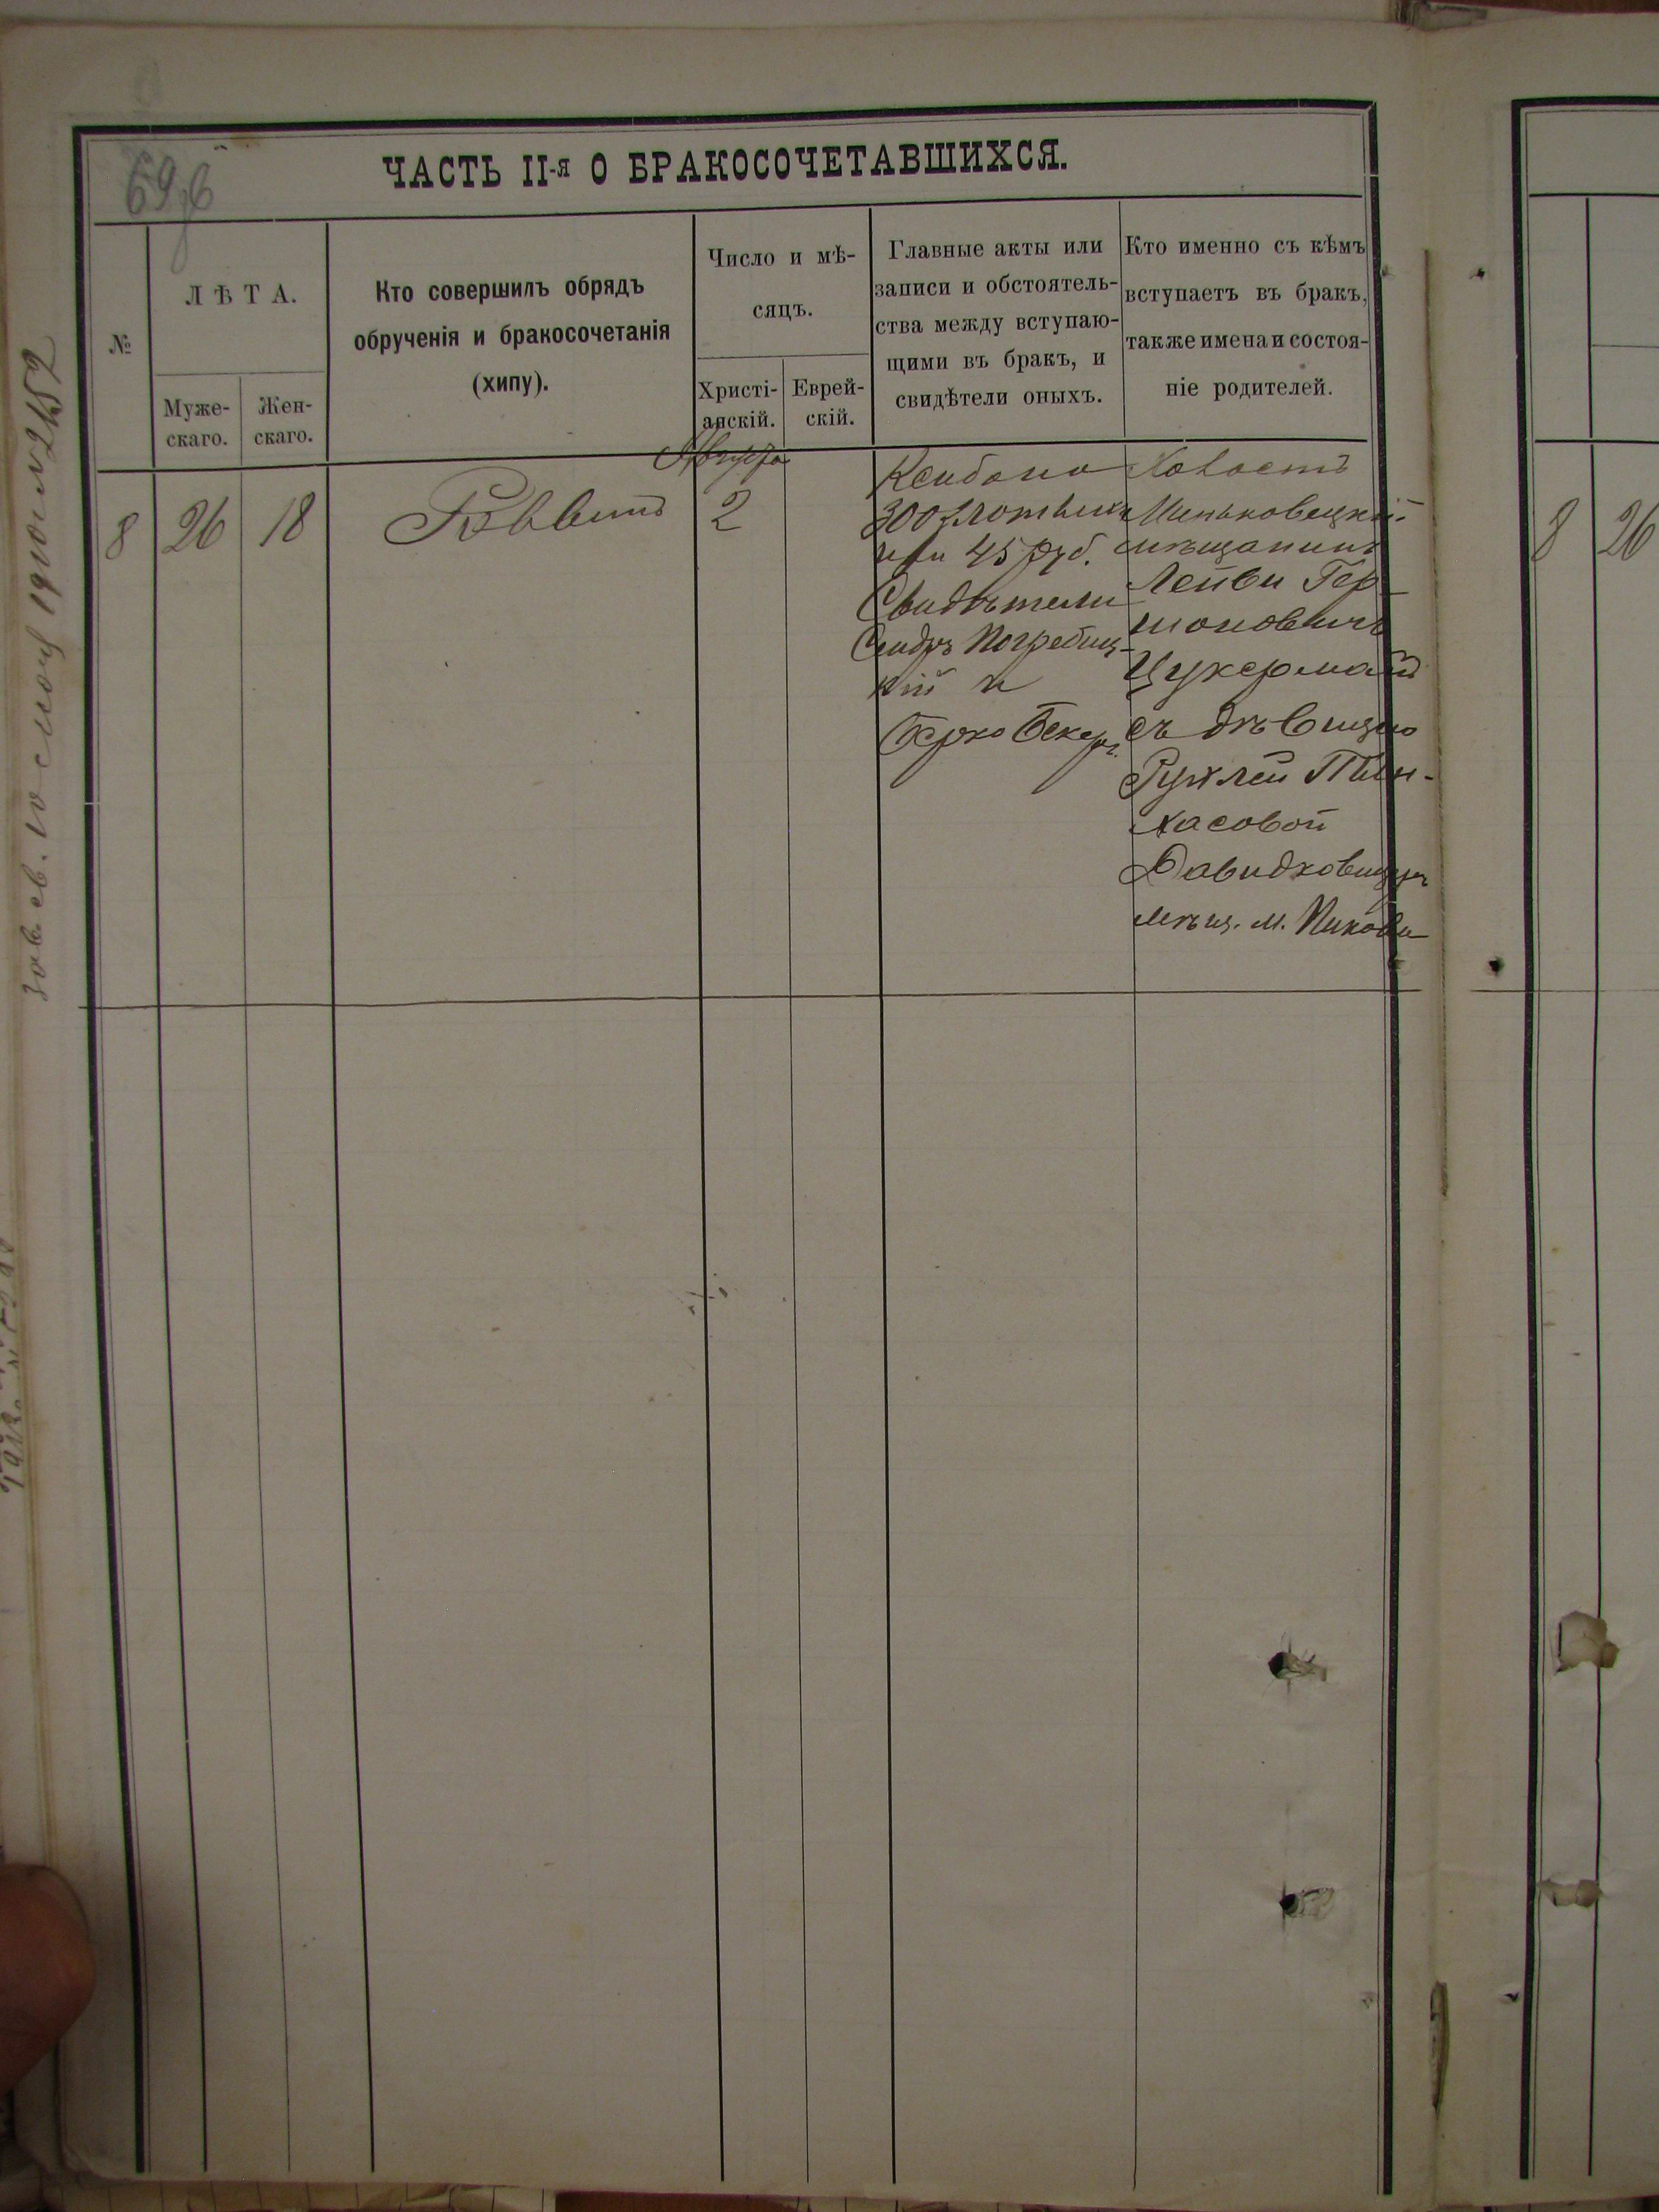 69об
ЧАСТЬ II-я О БРАКОСОЧЕТАВШИХСЯ.
№
ЛѢТА.
Муже-
скаго.
Жен-
скаго.
Кто совершилъ обрядъ
обрученія и бракосочетанія
(хипу).
Число и мѣ-
сяцъ.
Христі-
анскій.
Еврей-
скій.
Главные акты или
записи и обстоятель-
ства между вступаю-
щими въ бракъ, и
свидѣтели оныхъ.
Кто именно съ кѣмъ
вступаетъ въ бракъ,
также имена и состоя-
ніе родителей.
8
26
18
Раввинъ
Августа
2
300 злотыхъ
или 45 руб.
Свидѣтели
Сендръ Погребищ-
кій и
Берко Бекеръ
Холостъ
Миньковецкій
мѣщанинъ
Лейви Гер-
шоновичъ
Цукерманъ
съ дѣвицею
Рухлей Пин-
хасовой
мѣщ. м. Пикова
8
26
1910 г. № 2452